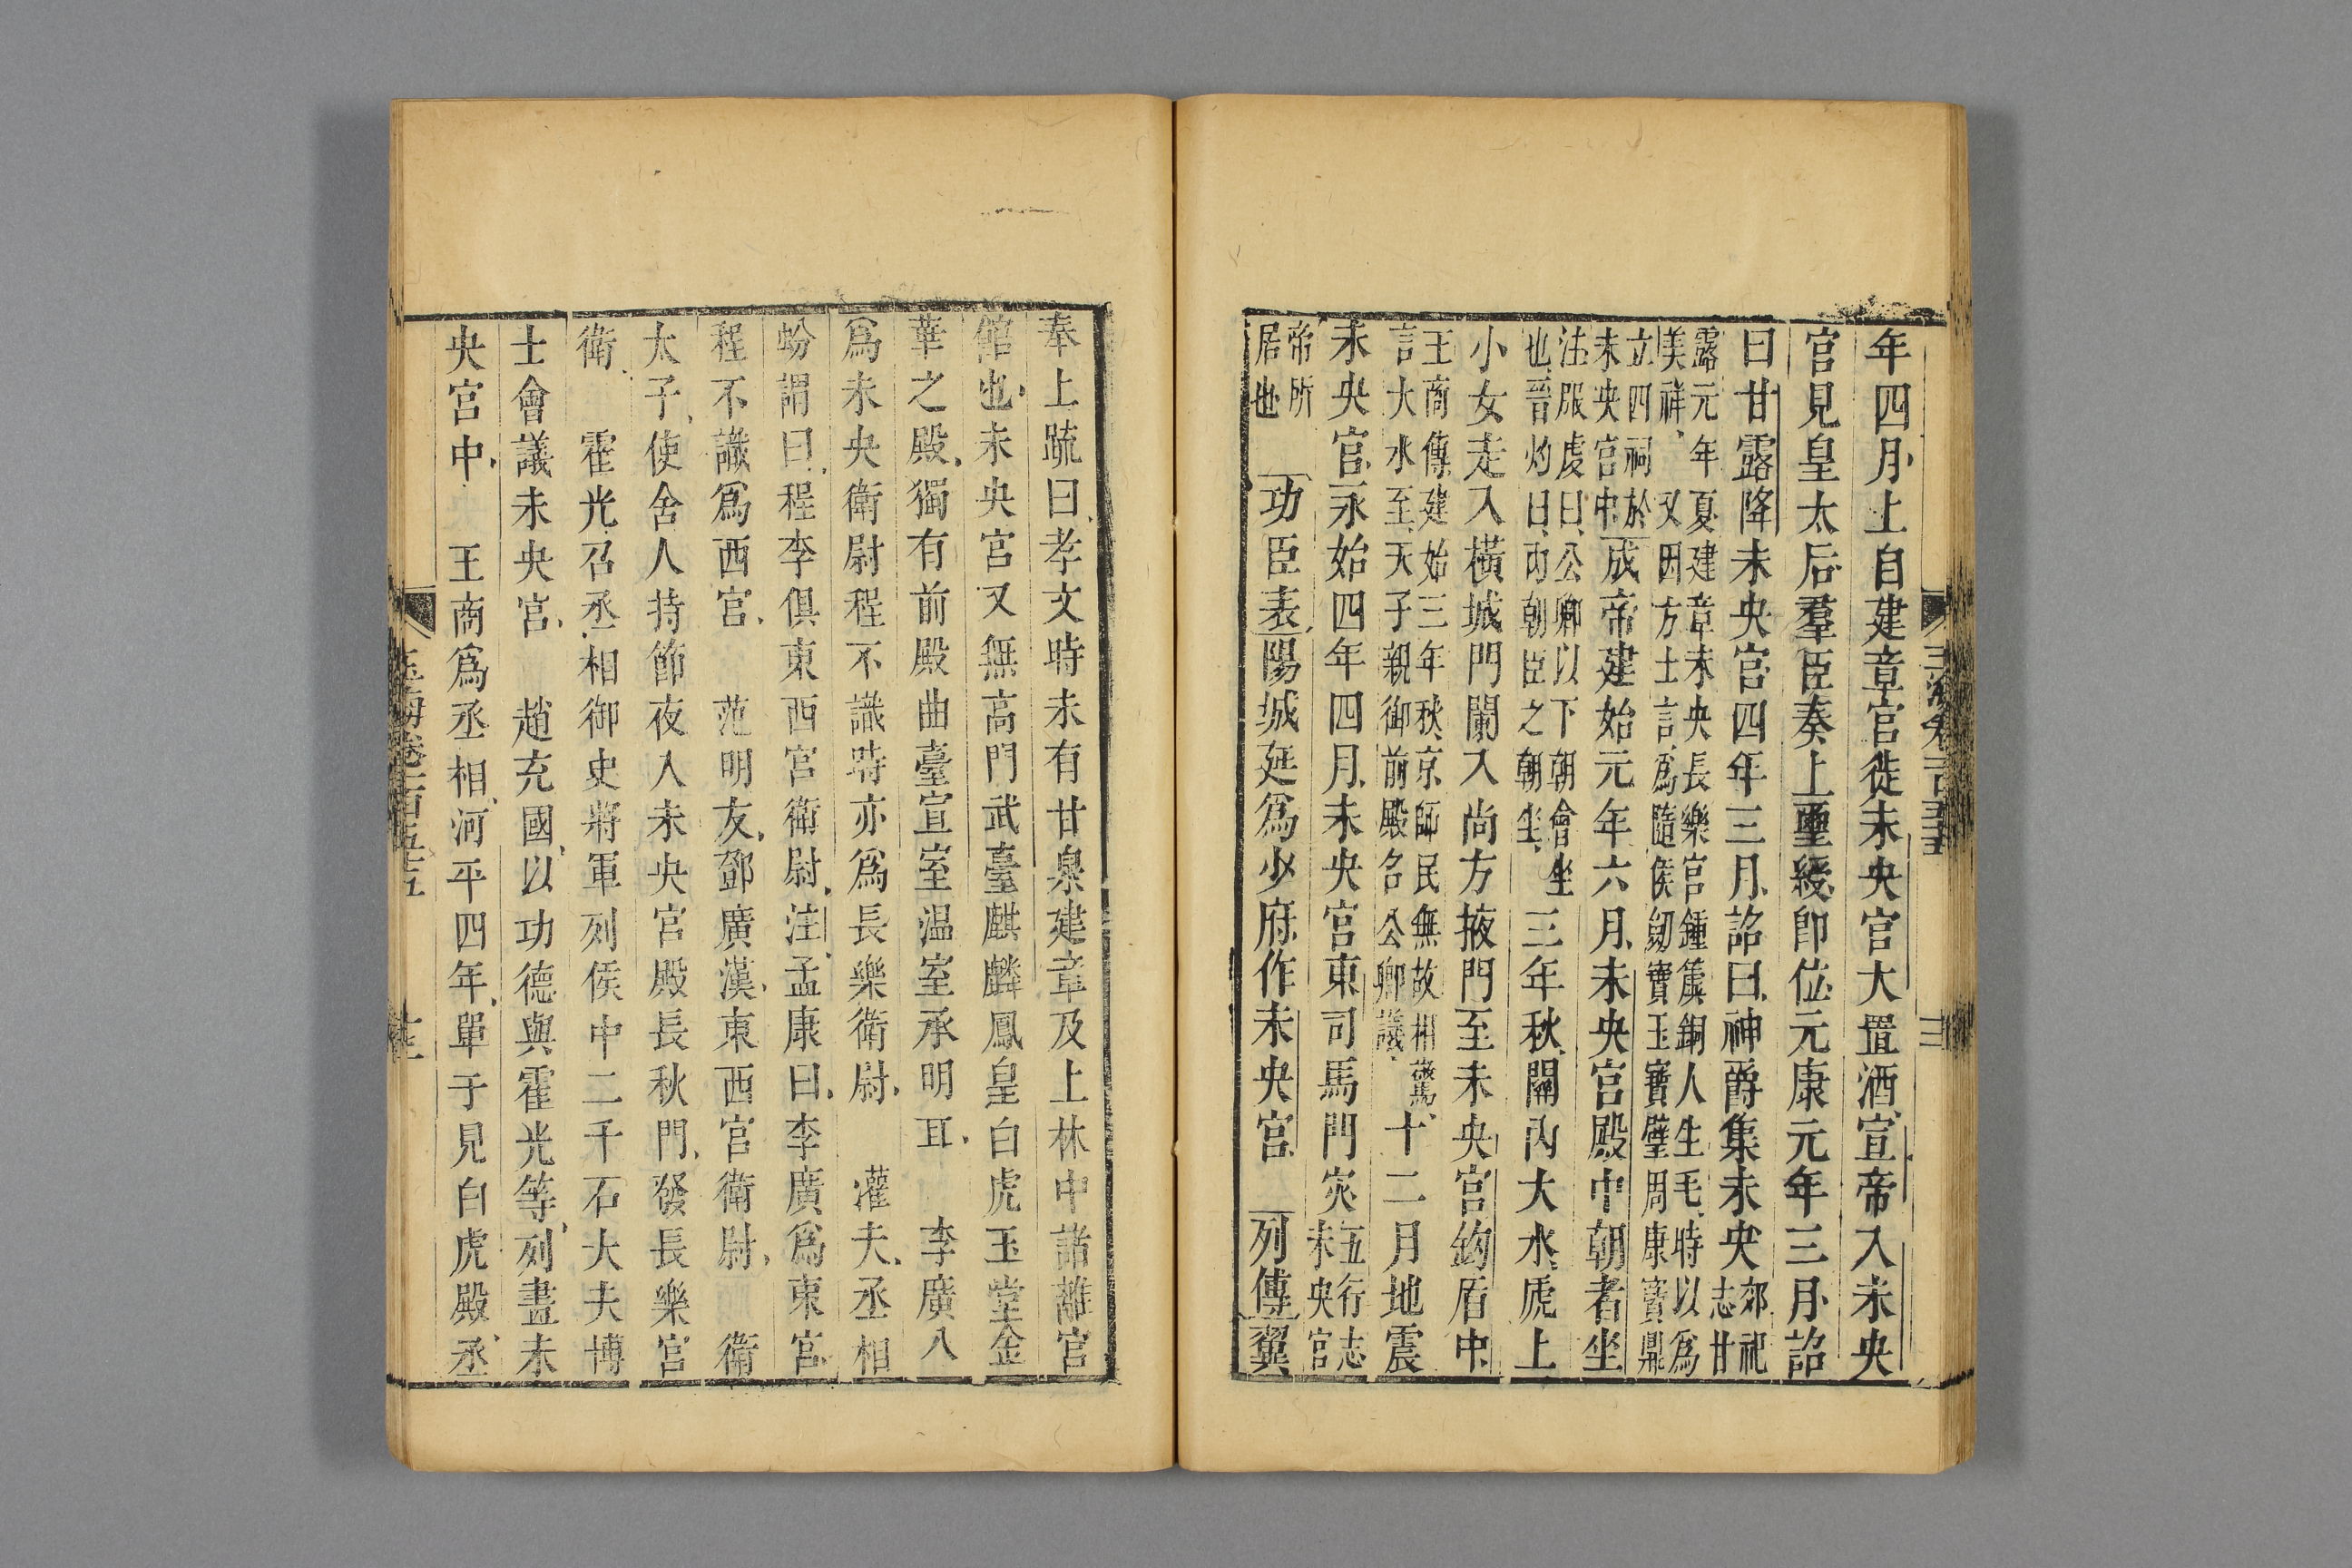 年四月上自建章宮徙未央宮大置酒宣帝入未央
宮見皇太后羣臣奏上璽綬卽位元康元年三月詔
曰甘露降未央宮四年三月詔曰神爵集未央郊祀志甘
露元年夏建章未央長樂宮鍾簴銅人生毛時以爲
美祥又因方士言爲隨侯劒寶玉寶璧周康寶鼎
立四祠於未央宮中成帝建始元年六月未央宮殿中朝者坐
注服虔曰公卿以下朝會坐也晉灼曰內朝臣之朝坐三年秋關內大水虒上
小女走入橫城門闌入尚方掖門至未央宮鉤盾中
王商傳建始三年秋京師民無故相驚言大水至天子親御前殿召公卿議十二月地震
未央宮永始四年四月未央宮東司馬門災五行志未央宮
帝所居也功臣表陽城延爲少府作未央宮列傳翼
玉海卷一百五十五
奉上疏曰孝文時未有甘泉建章及上林中諸離宮
館也未央宮又無高門武臺麒麟鳳皇白虎玉堂金
華之殿獨有前殿曲臺宣室温室承明耳李廣入
爲未央衛尉程不識時亦爲長樂衛尉灌夫丞相
蚡謂曰程李俱東西宮衛尉注孟康曰李廣爲東宮
程不識爲西宮范明友鄧廣漢東西宮衛尉衛
太子使舍人持節夜入未央宮殿長秋門發長樂宮
衛霍光召丞相御史將軍列侯中二千石大夫博
士會議未央宮趙充國以功德與霍光等列畫未
央宮中王商爲丞相河平四年單于見白虎殿丞
玉海卷一百五十五